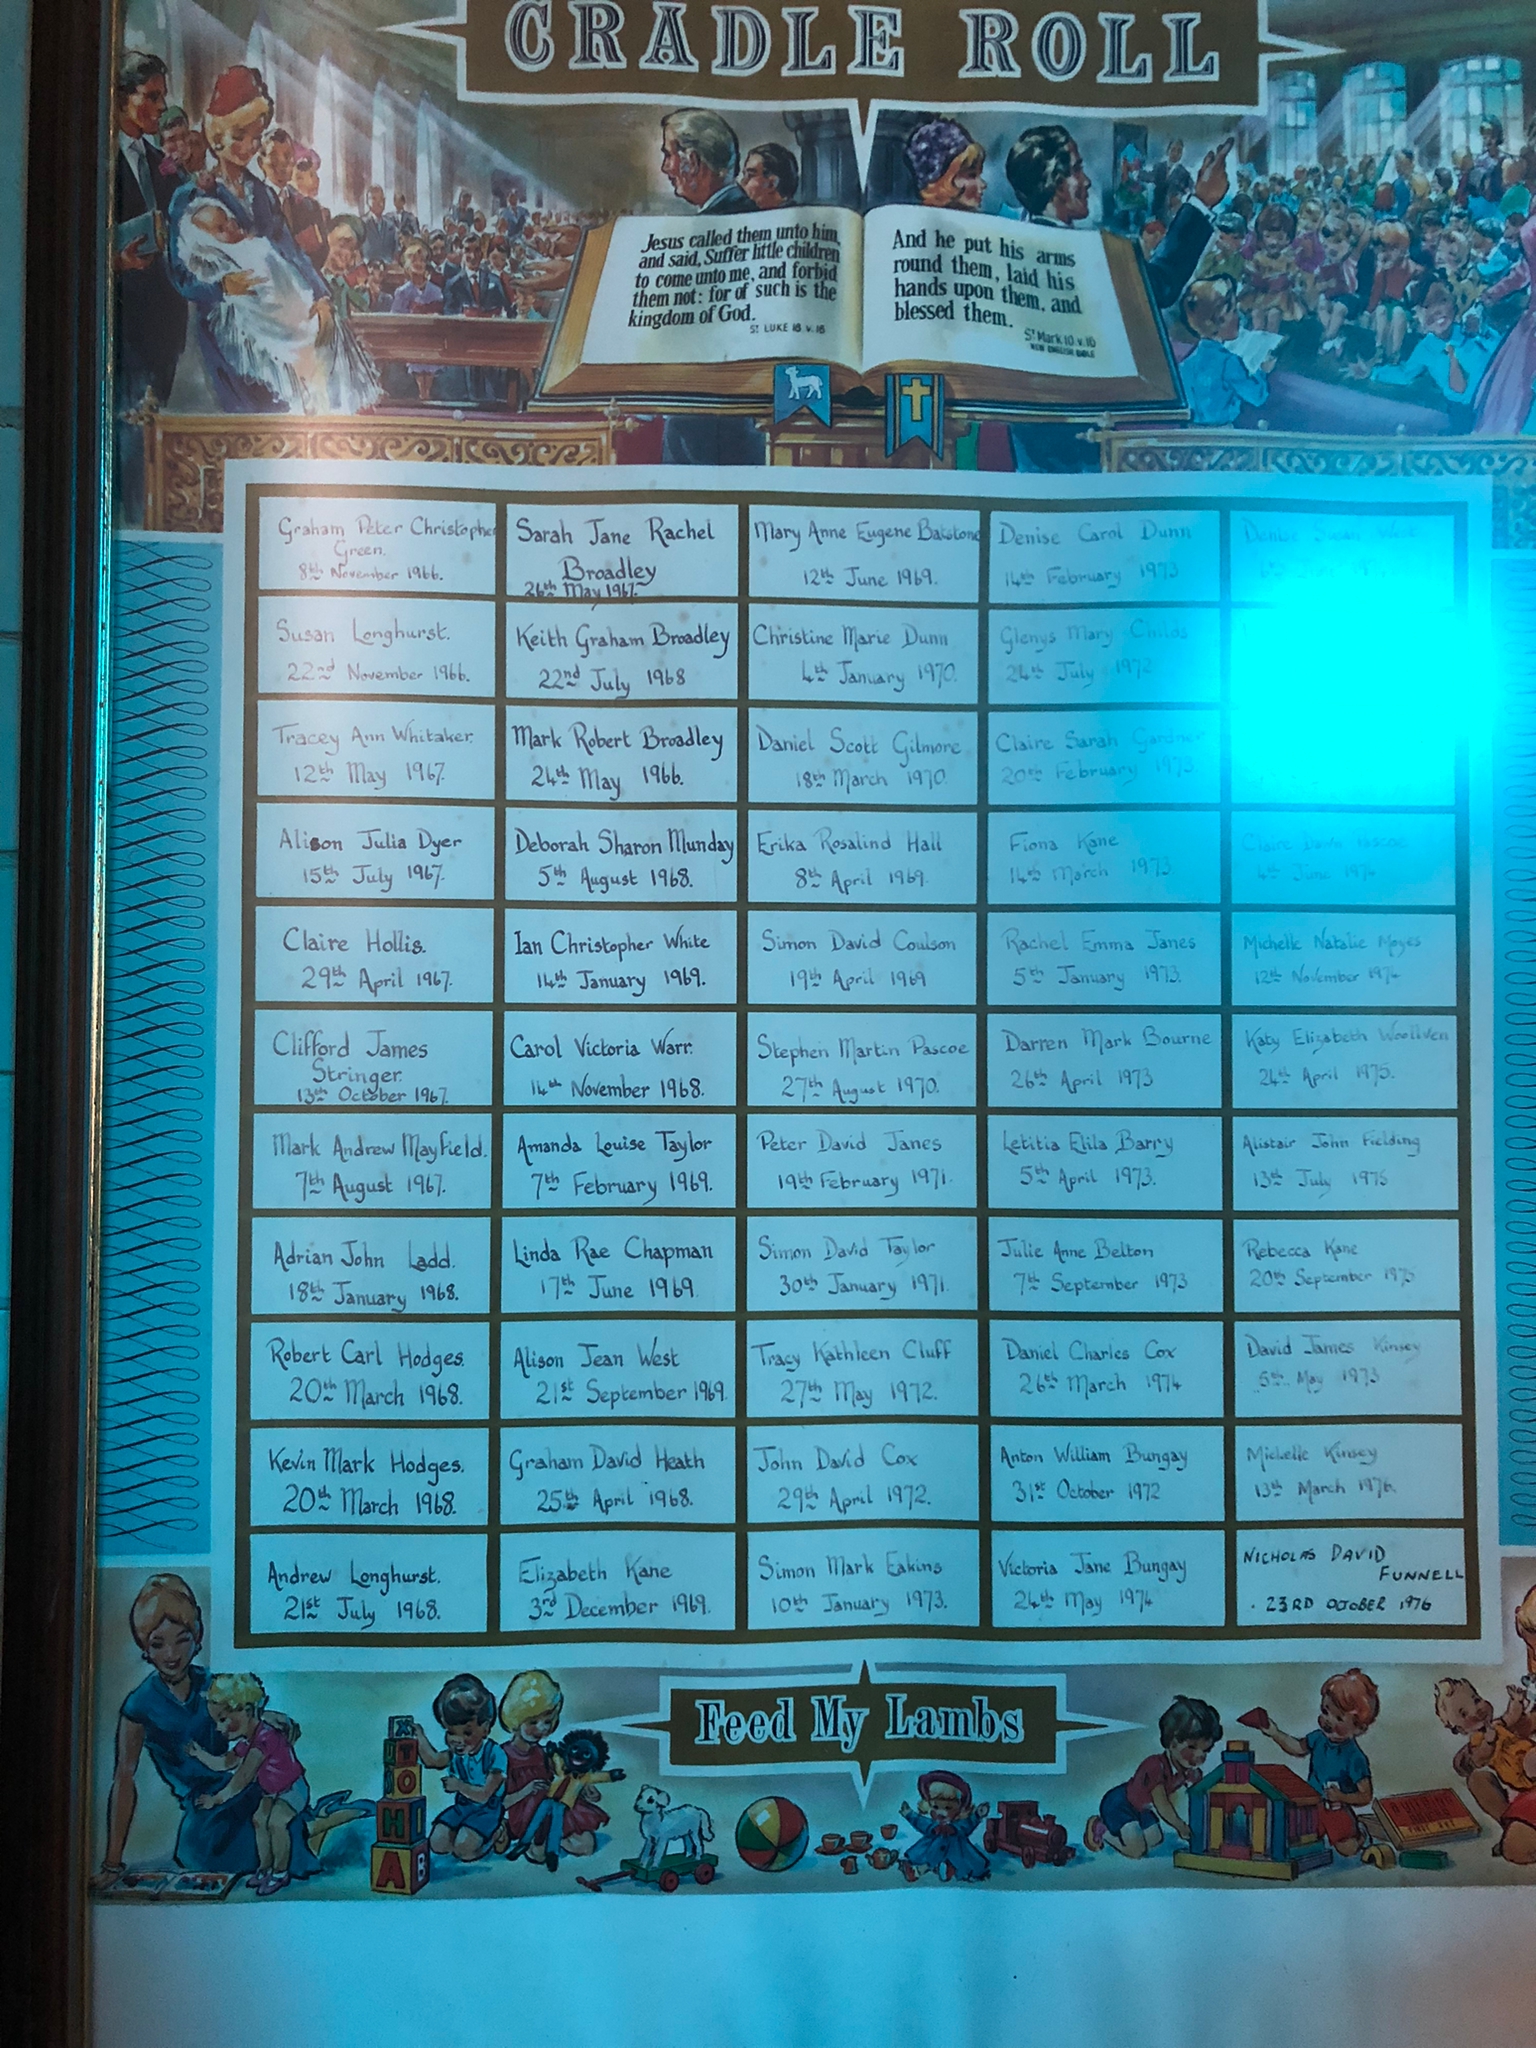 CRADLE ROLL
Jesus called them unto him,
and said, Suffer little children
to come unto me, and forbid
them not: for of such is the
kingdom of God.
St LUKE 18 v. 16
And he put his arms
round them, laid his
hands upon them, and
blessed them.
St Mark 10. v. 16
NEW ENGLISH BIBLE
Graham Peter Christopher
Green.
8th November 1966.
Sarah Jane Rachel
Broadley
26th May 1967.
Mary Anne Eugene Batstone
12th June 1969.
Denise Carol Dunn
14th February 1973
Denise Susan
Susan Longhurst.
22nd November 1966.
Keith Graham Broadley
22nd July 1968
Christine Marie Dunn
4th January 1970.
Glenys Mary Childs
24th July 1972
Tracey Ann Whitaker.
12th May 1967.
Mark Robert Broadley
24th May 1966.
Daniel Scott Gilmore
18th March 1970.
Claire Sarah Gardner
20th February 1973.
Alison Julia Dyer
15th July 1967.
Deborah Sharon Munday
5th August 1968.
Erika Rosalind Hall
8th April 1969.
Fiona Kane
14th March 1973
Claire Dawn Pascoe
4th June 1974
Claire Hollis.
29th April 1967.
Ian Christopher White
14th January 1969.
Simon David Coulson
19th April 1969
Rachel Emma Janes
5th January 1973.
Michelle Natalie Moyes
12th November 1974
Clifford James
Stringer.
13th October 1967.
Carol Victoria Warr.
14th November 1968.
Stephen Martin Pascoe
27th August 1970.
Darren Mark Bourne
26th April 1973
Katy Elizabeth Woollven
24th April 1975.
Mark Andrew Mayfield.
7th August 1967.
Amanda Louise Taylor
7th February 1969.
Peter David Janes
19th February 1971.
Letitia Elila Barry
5th April 1973.
Alistair John Fielding
13th July 1975
Adrian John Ladd.
18th January 1968.
Linda Rae Chapman
17th June 1969.
Simon David Taylor
30th January 1971.
Julie Anne Belton
7th September 1973
Rebecca Kane
20th September 1975
Robert Carl Hodges.
20th March 1968.
Alison Jean West
21st September 1969.
Tracy Kathleen Cluff
27th May 1972.
Daniel Charles Cox
26th March 1974
David James Kinsey
5th May 1973
Kevin Mark Hodges.
20th March 1968.
Graham David Heath
25th April 1968.
John David Cox
29th April 1972.
Anton William Bungay
31st October 1972
Michelle Kinsey
13th March 1976.
Andrew Longhurst.
21st July 1968.
Elizabeth Kane
3rd December 1969.
Simon Mark Eakins
10th January 1973.
Victoria Jane Bungay
24th May 1974
NICHOLAS DAVID
FUNNELL
23RD OCTOBER 1976
Feed My Lambs
X
T
O
H
A B